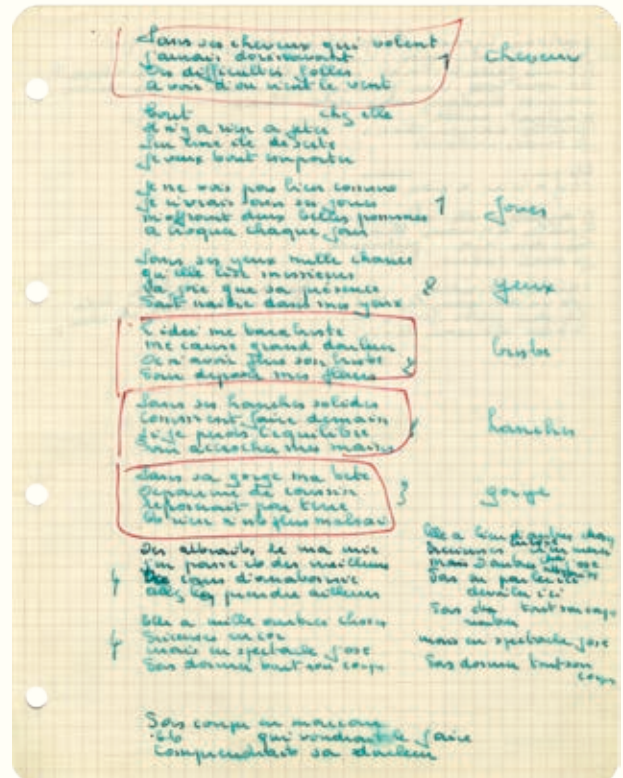 Sans ses cheveux qui volent
J'aurais dorénavant
Des difficultés folles
à voir d'où vient le vent
cheveux
Tout chez elle
Il n'y a rien à jeter
Sur l'île déserte
Je veux tout emporter
Je ne vais pas bien comme
Je vivrais sans ses joues
m'offrant deux belles pommes
à croquer chaque jour
1
joues
Sans ses yeux mille choses
qu'elle
La joie que sa présence
Fait naître dans mes yeux
2
yeux
L'idée me tarabuste
me cause grand douleur
De n'avoir plus son buste
Pour déposer mes fleurs
buste
Sans ses hanches solides
Comment faire demain
Si je perds l'équilibre
Pour accrocher mes mains
hanches
Sans sa gorge ma tête
Dépourvue de coussin
Reposerait par terre
Et rien n'est plus malsain
3
gorge
Des attraits de ma mie
J'en passe et des meilleurs
Des cours d'anatomie
allez les prendre ailleurs
Elle a mille autres choses
Précieuses encor
mais en spectacle j'ose
Pas donner tout son corps
Elle a bien d'autres choses
Précieuses
mais
Pas en parler ici
dévoiler ici
Pas tout son corps
mais en spectacle j'ose
Pas donner tout son
corps
Sans coups en
Et qui voudrait le faire
Comprendrait sa douleur